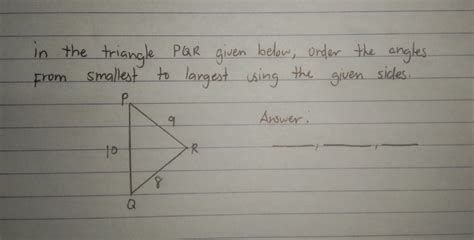 in the triangle PQR given below, order the angles
From smallest to largest using the given sides.
P
9
Answer.
10
R
8
Q